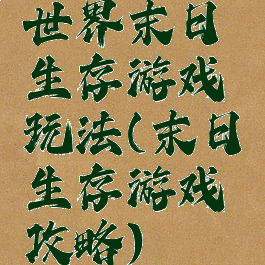 世界末日
生存游戏
玩法(末日
生存游戏
攻略)